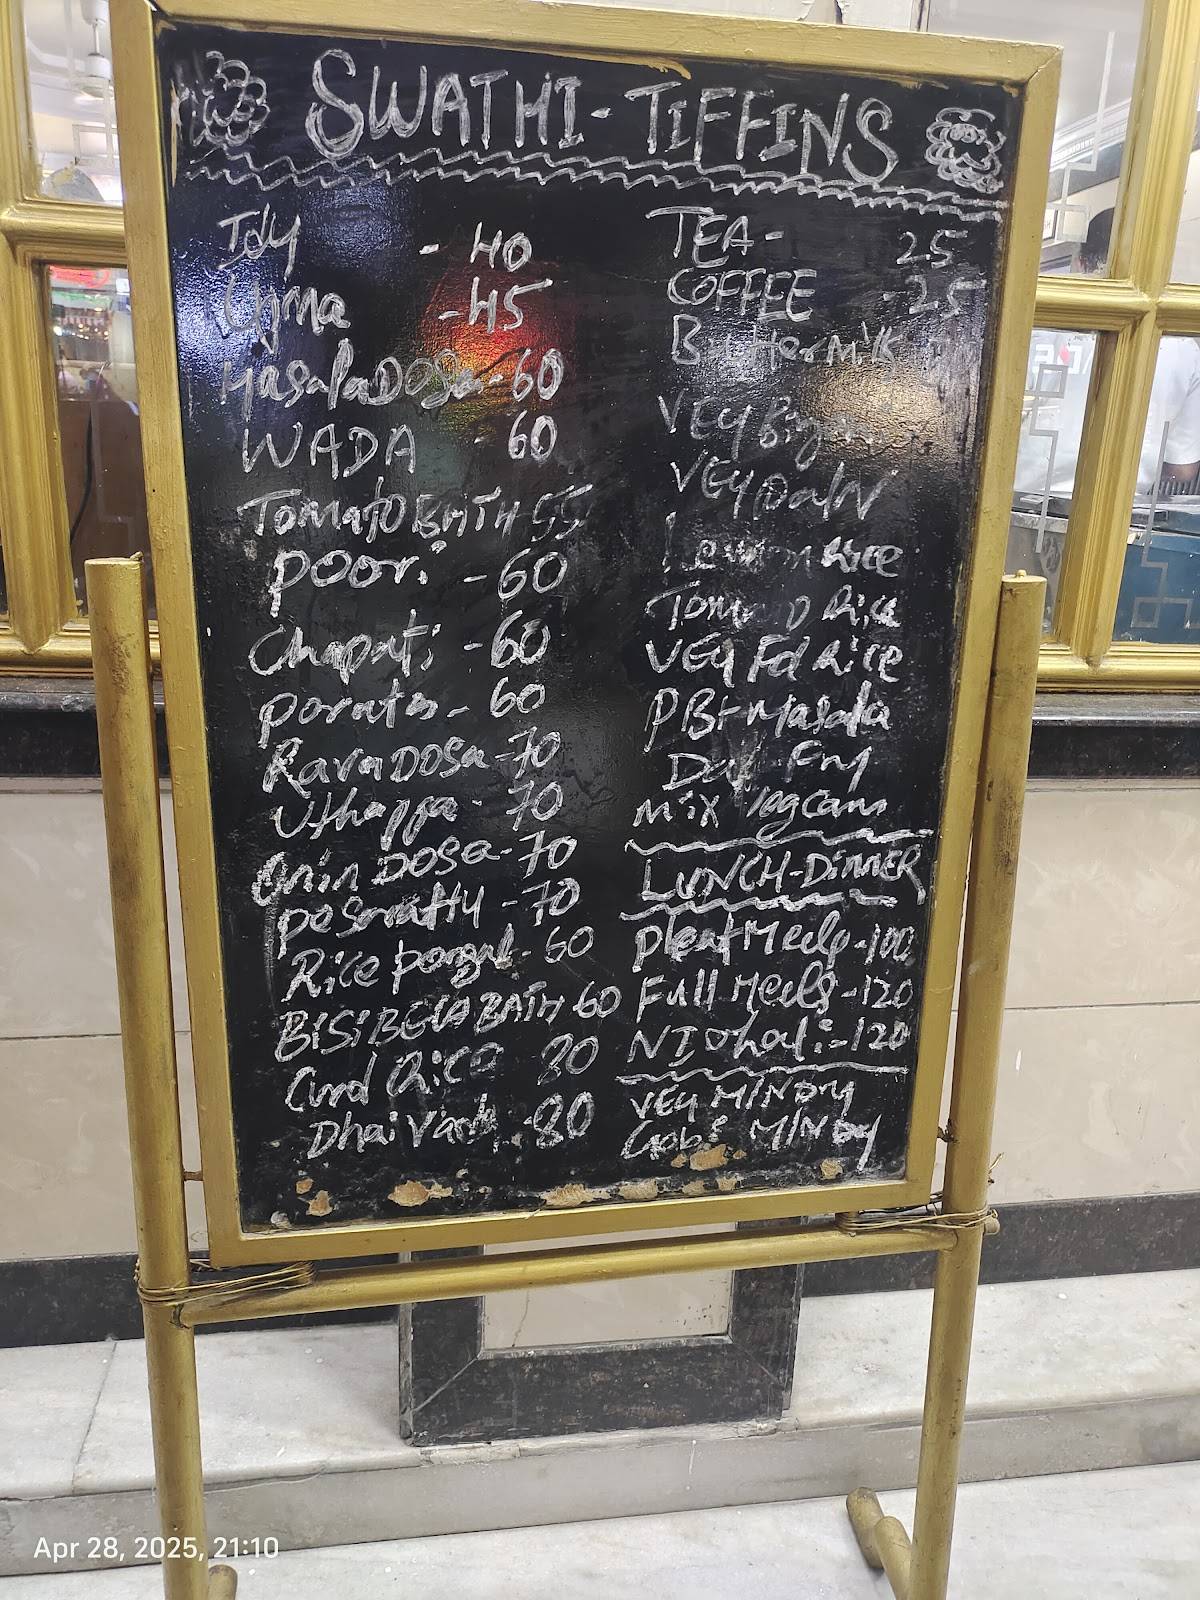 SWATHI - TIFFINS
Idy - 40
Upma - 45
Masala DOSa - 60
WADA - 60
Tomato BATH 55
poori - 60
Chapati - 60
porata - 60
Rava DOSa - 70
Uthappa - 70
Onin DOSa - 70
peseratty - 70
Rice pongal - 60
BISIBELA BATH 60
Curd Rice 80
Dhai Vada - 80
TEA - 25
COFFEE - 25
ButterMilk
VEG
VEG
Lemon Rice
Tomato Rice
VEG Fd Rice
PBt Masala
Dal Fry
mix
LUNCH-DINNER
pleat Meels - 100
Full Meels - 120
NI thali - 120
VEG MINDY
Gobi MINDY
Apr 28, 2025, 21:10